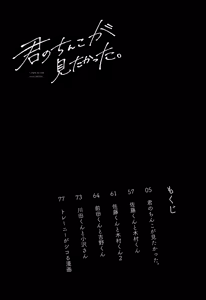 君のちんこが
見たかった。
もくじ
05 君のちんこが見たかった。
57 佐藤くんと木村くん
61 佐藤くんと木村くん2
64 前田くんと吉野くん
73 川田くんと小沢さん
77 トレーニーがシコる漫画